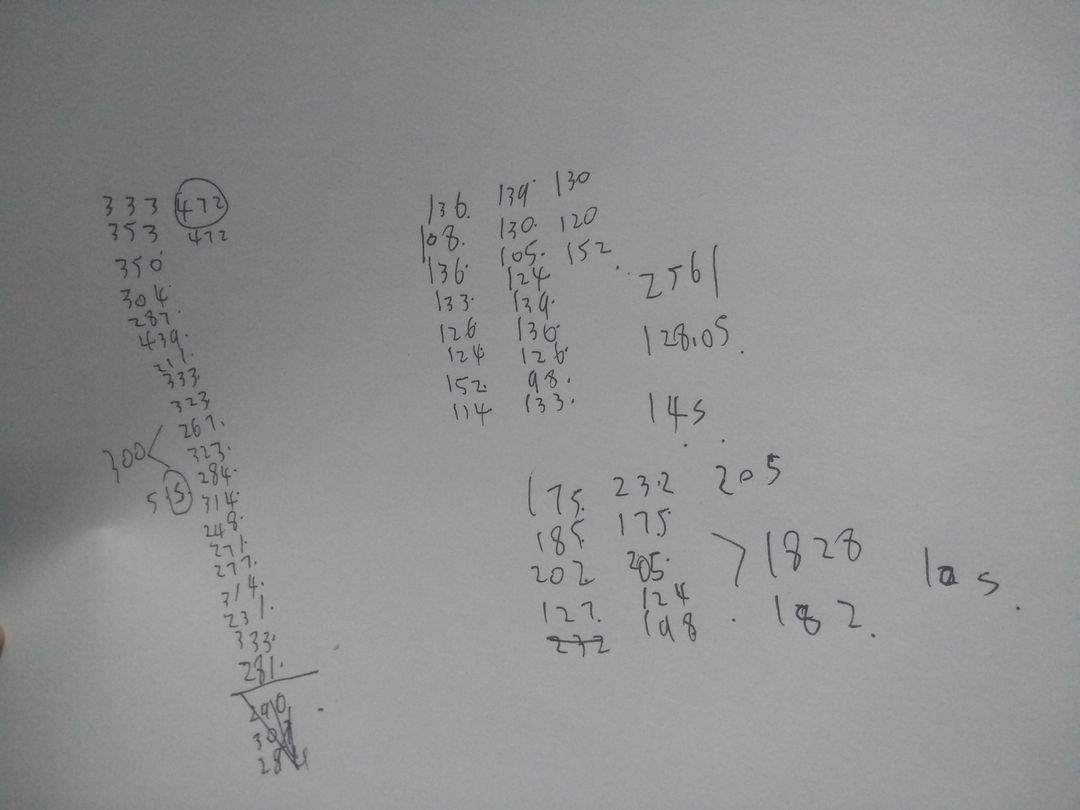 333 472
353 472
350
304
287.
439.
211.
333.
323.
267.
300 <
323.
284.
5 15 314.
248.
271.
277.
314.
231.
333.
281.
290
284
136. 139. 130
108. 130. 120
136. 105. 152.
133. 124
126 139.
124. 136.
152. 126.
114 98.
133.
2561
128.05.
14s.
175. 232 205
185. 175
202 205.
127. 124
232 198.
> 1828
182.
10 s.